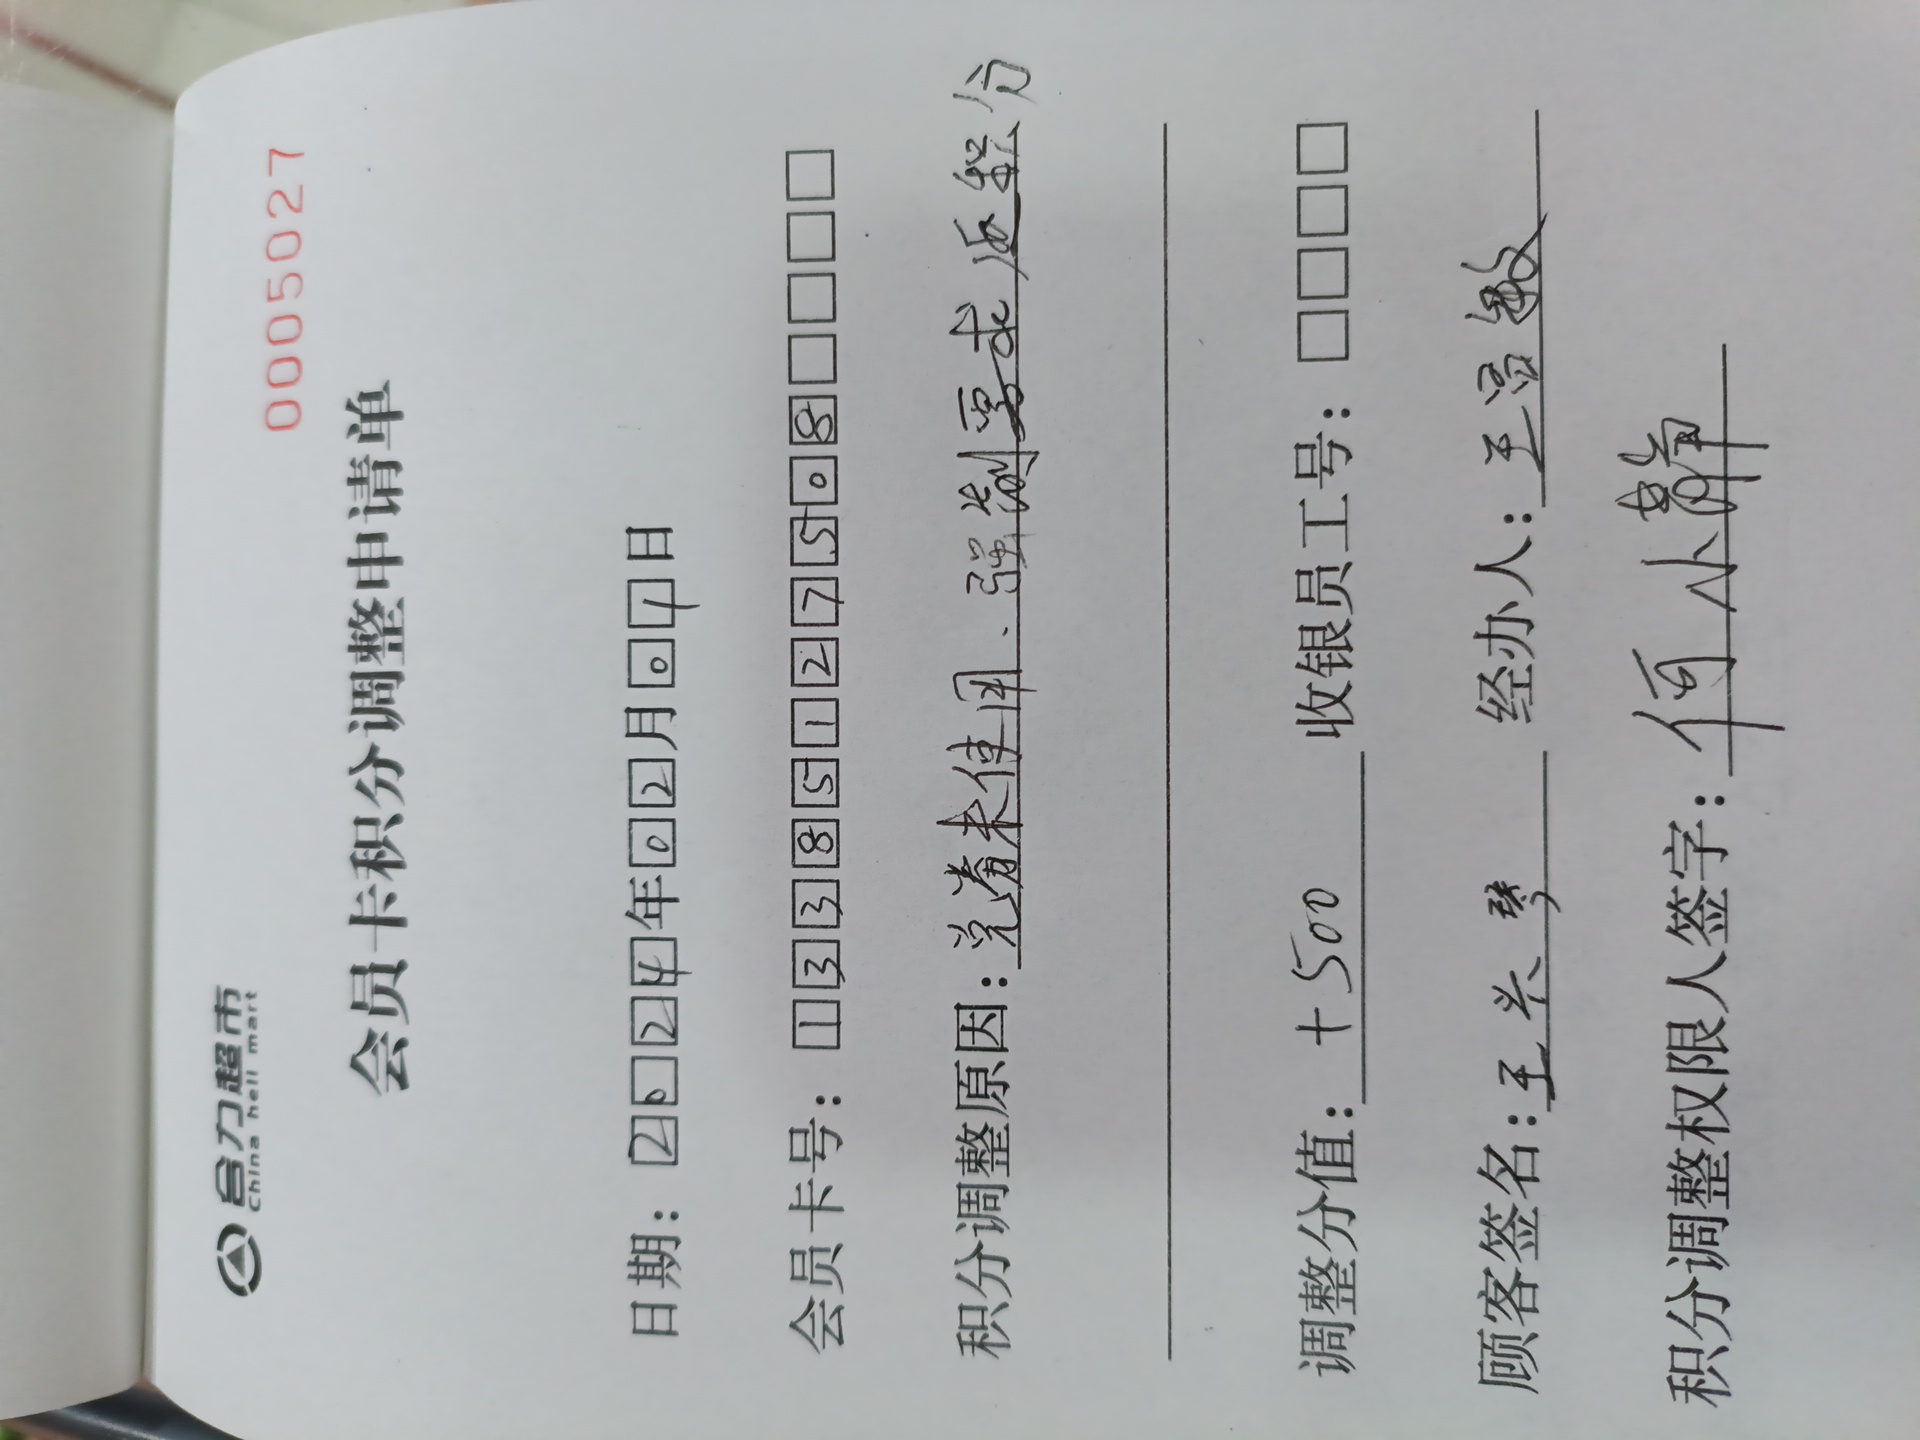 合力超市
China heli mart
0005027
会员卡积分调整申请单
日期：2024年02月01日
会员卡号：13385127508
积分调整原因：说着未使用、强制要求返积分
调整分值：+500 收银员工号：
顾客签名：王兴琴 经办人：王
积分调整权限人签字：何小